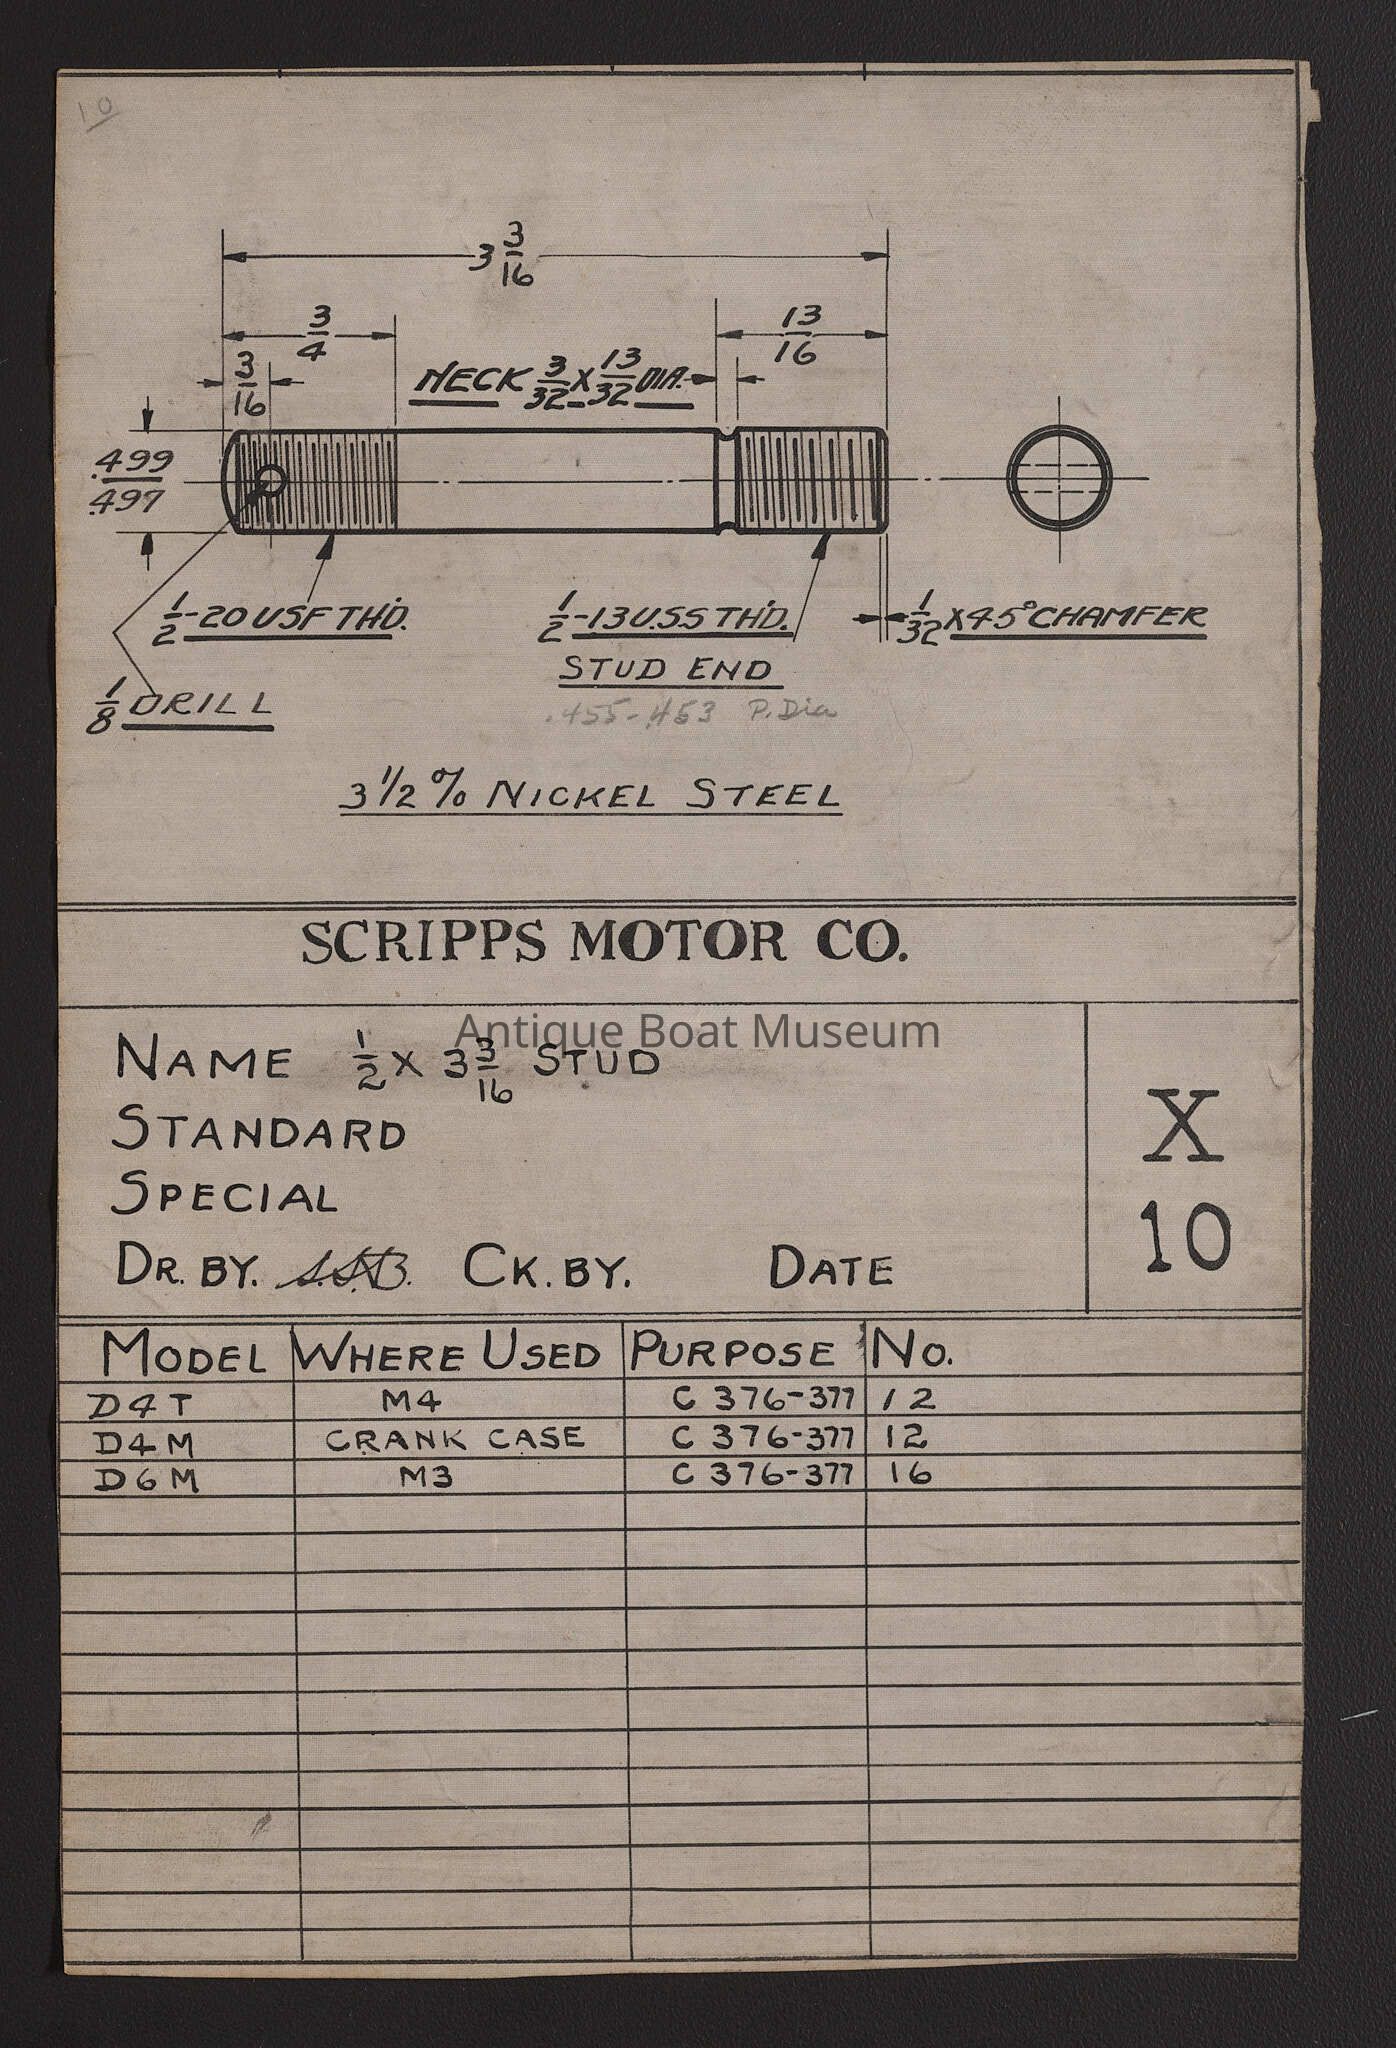 10
3 3/16
3/4
13/16
3/16
NECK 3/32 X 13/32 DIA.
.499
.497
1/2-20 USF TH'D.
1/2-13 U.S.S TH'D.
STUD END
1/32 X 45° CHAMFER
1/8 DRILL
.455-.453 P. Dia
3 1/2 % NICKEL STEEL
SCRIPPS MOTOR CO.
Antique Boat Museum
NAME 1/2 X 3 3/16 STUD
STANDARD
SPECIAL
X
10
DR. BY. CK. BY. DATE
MODEL WHERE USED PURPOSE No.
D4T M4 C 376-377 12
D4M CRANK CASE C 376-377 12
D6M M3 C 376-377 16